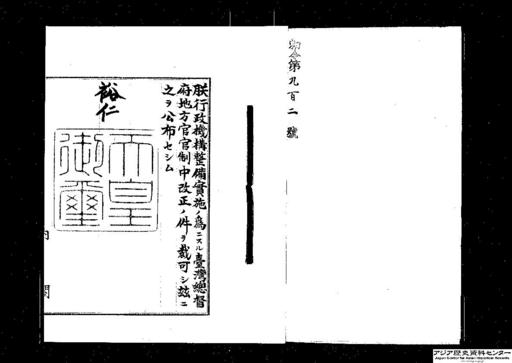 勅令第九百二號
朕行政機構整備實施ノ爲ニスル臺灣總督
府地方官官制中改正ノ件ヲ裁可シ茲ニ
之ヲ公布セシム
裕仁
天皇御璽
内閣
アジア歴史資料センター
Japan Center for Asian Historical Records